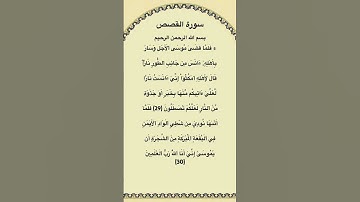 سورة القصص
بسم الله الرحمن الرحيم
۞ فَلَمَّا قَضَىٰ مُوسَى الْأَجَلَ وَسَارَ
بِأَهْلِهِ ءَانَسَ مِن جَانِبِ الطُّورِ نَارًا
قَالَ لِأَهْلِهِ امْكُثُوا إِنِّي ءَانَسْتُ نَارًا
لَّعَلِّي ءَاتِيكُم مِّنْهَا بِخَبَرٍ أَوْ جَذْوَةٍ
مِّنَ النَّارِ لَعَلَّكُمْ تَصْطَلُونَ (29) فَلَمَّا
أَتَىٰهَا نُودِيَ مِن شَٰطِئِ الْوَادِ الْأَيْمَنِ
فِي الْبُقْعَةِ الْمُبَٰرَكَةِ مِنَ الشَّجَرَةِ أَن
يَٰمُوسَىٰ إِنِّي أَنَا اللَّهُ رَبُّ الْعَٰلَمِينَ
(30)